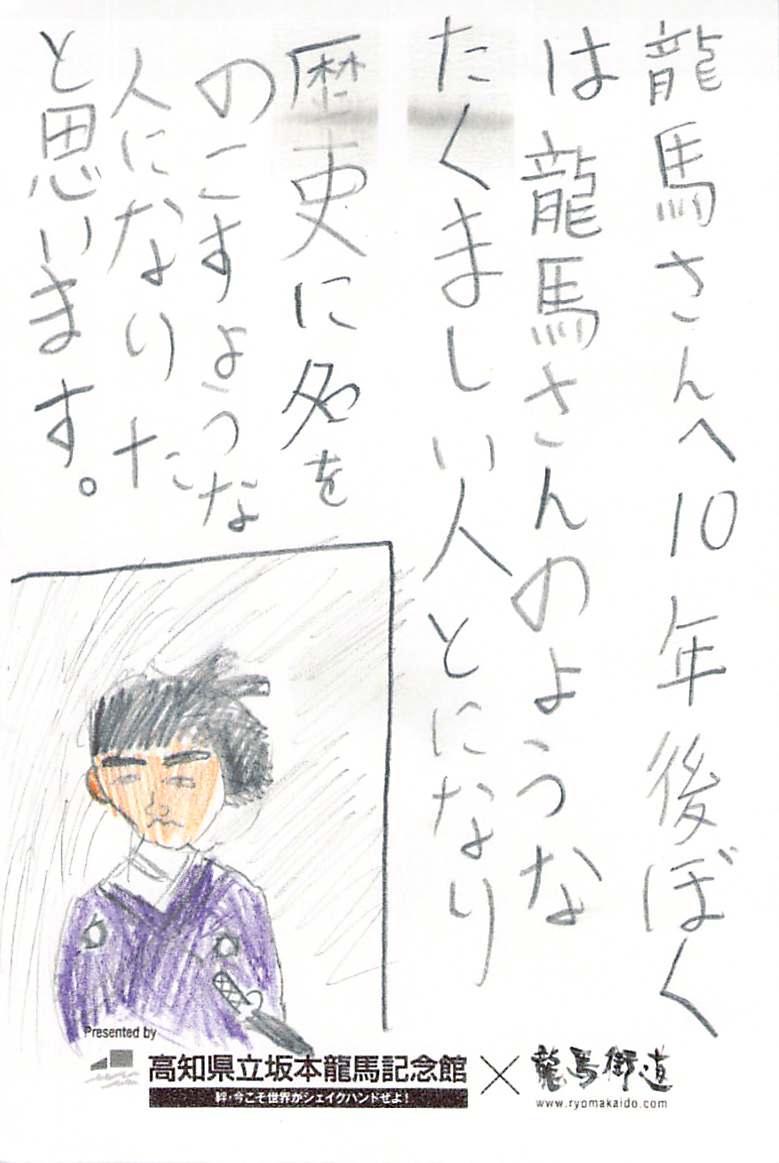 龍馬さんへ10年後ぼく
は龍馬さんのような
たくましい人とになり
歴史に名を
のこすような
人になりた
と思います。
Presented by
高知県立坂本龍馬記念館×龍馬街道
絆・今こそ世界がシェイクハンドぜよ!
www.ryomakaido.com